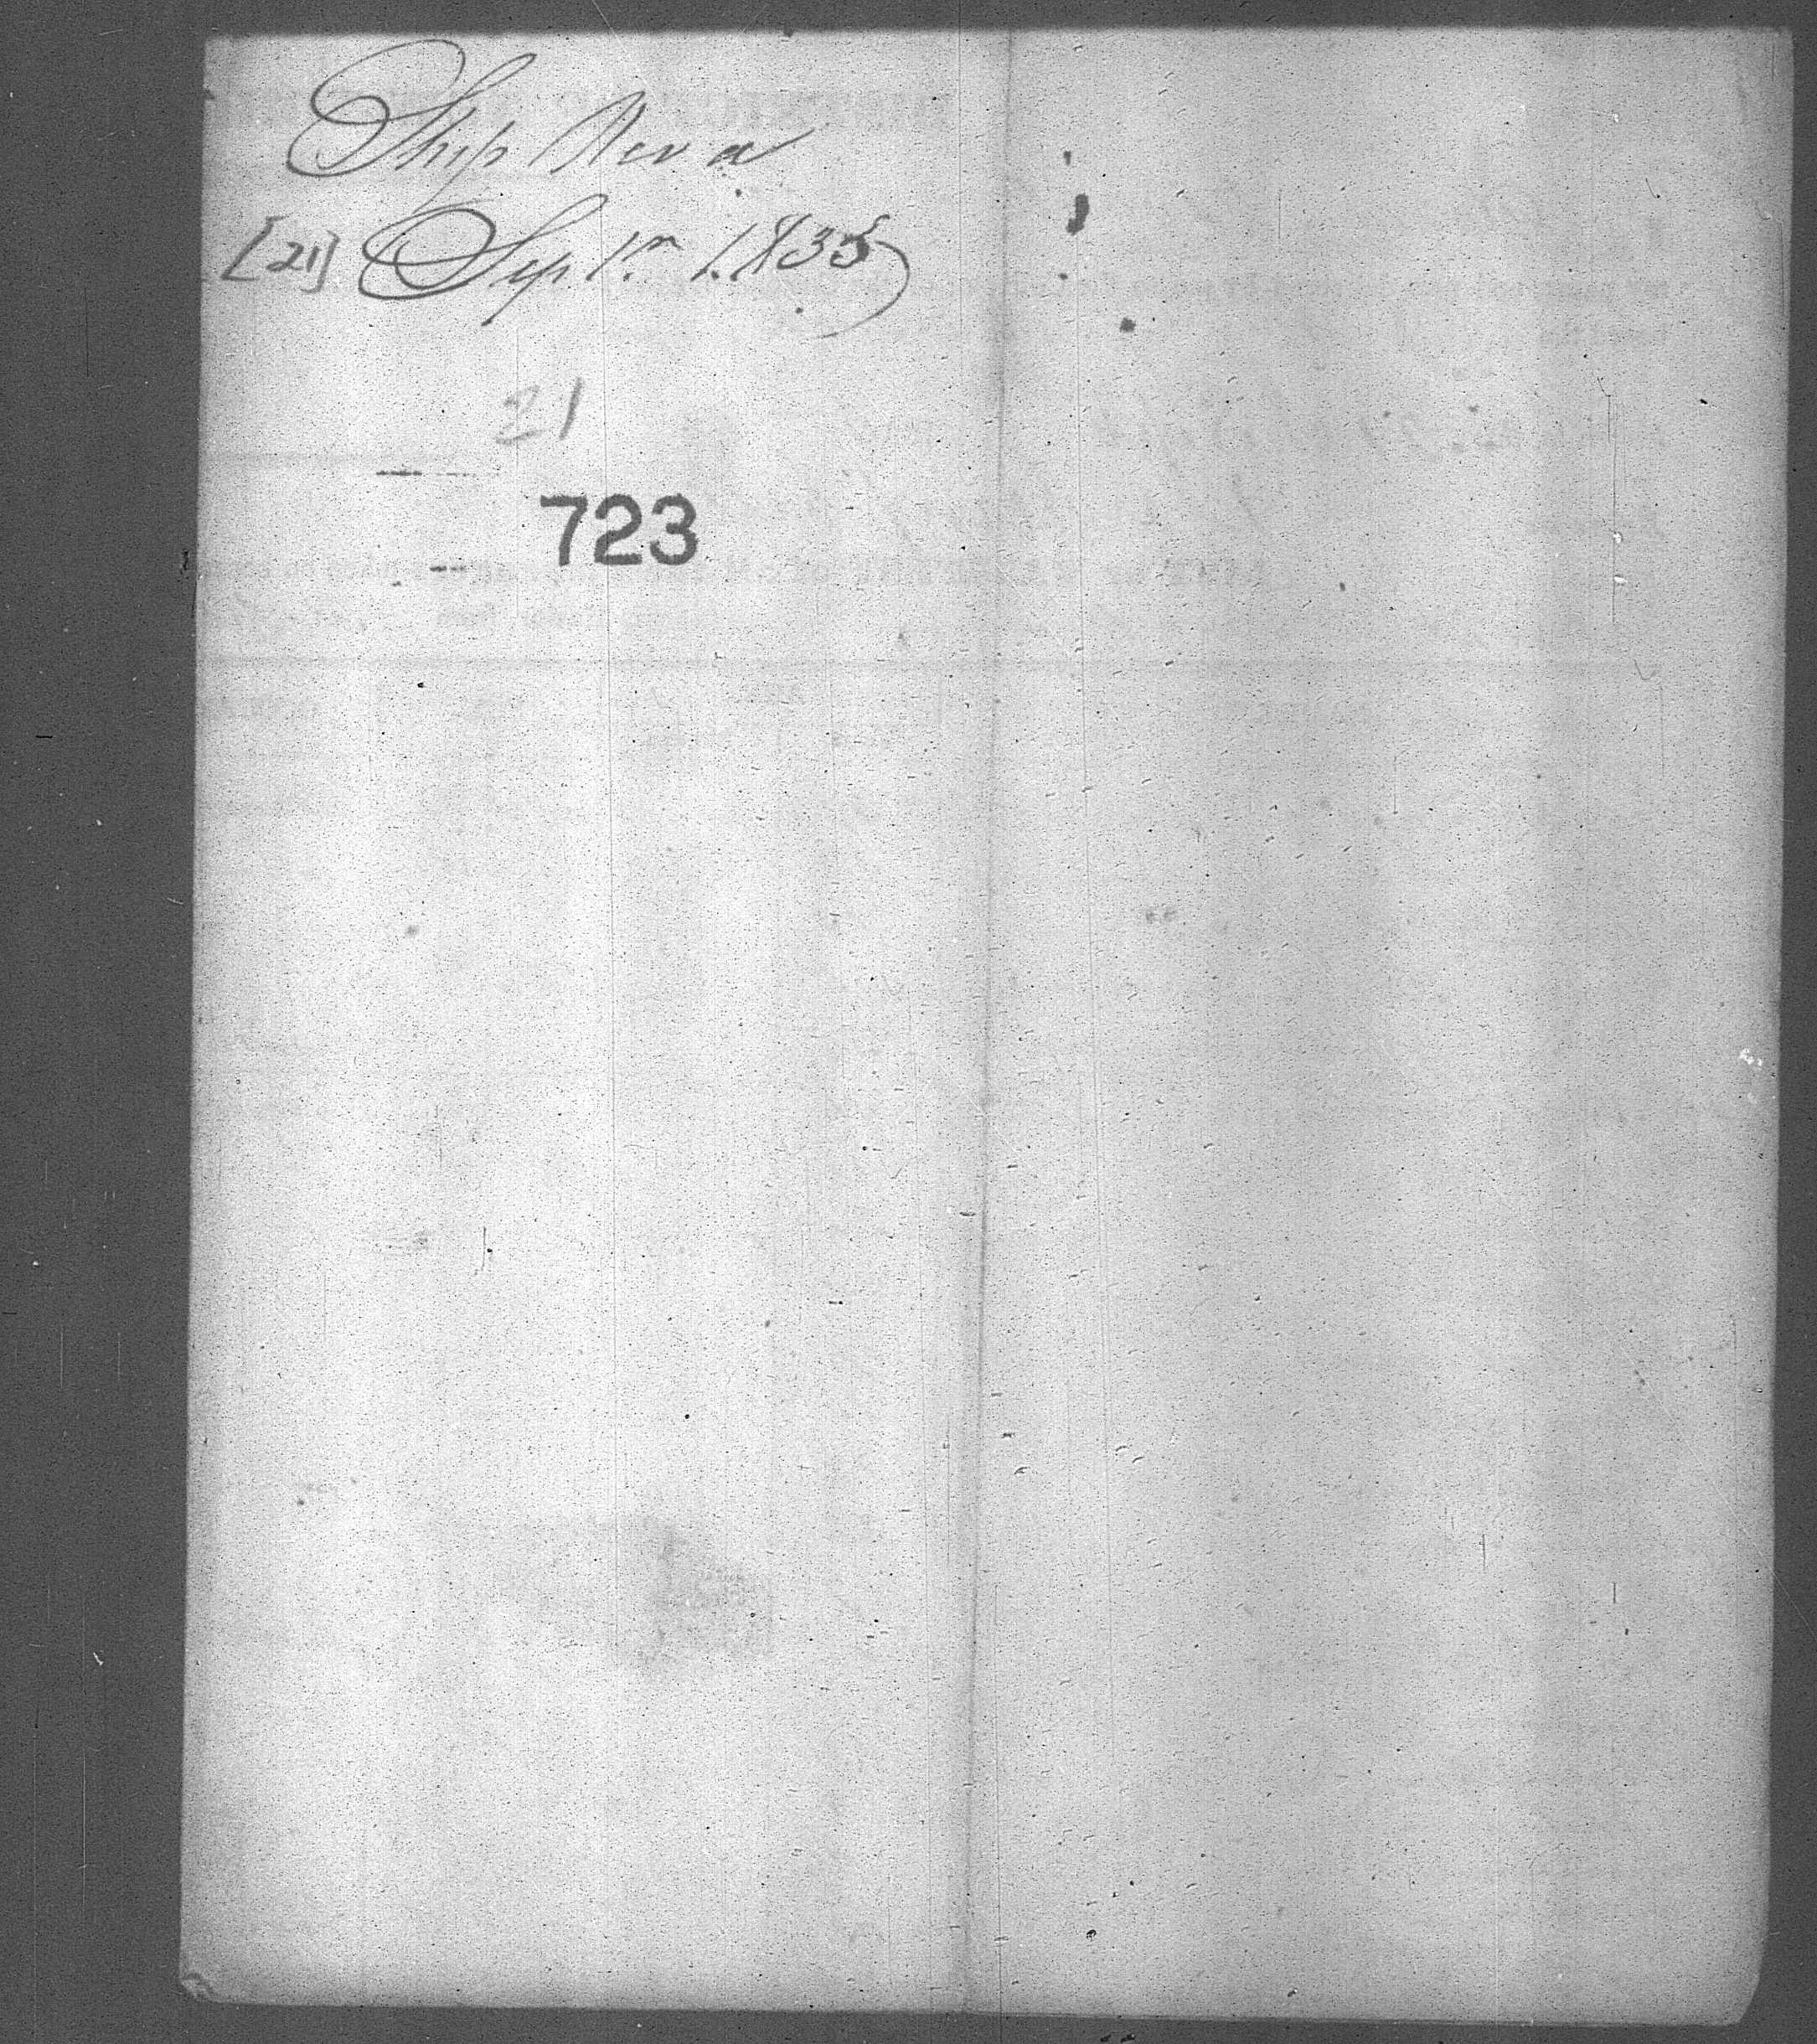 Ship Neva
[21] Sepr. 1835
21
723